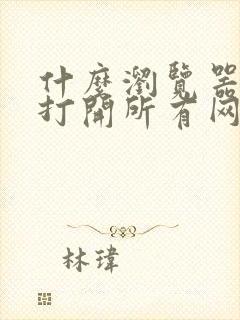 什麼瀏覽器
打開所有网
林瑋